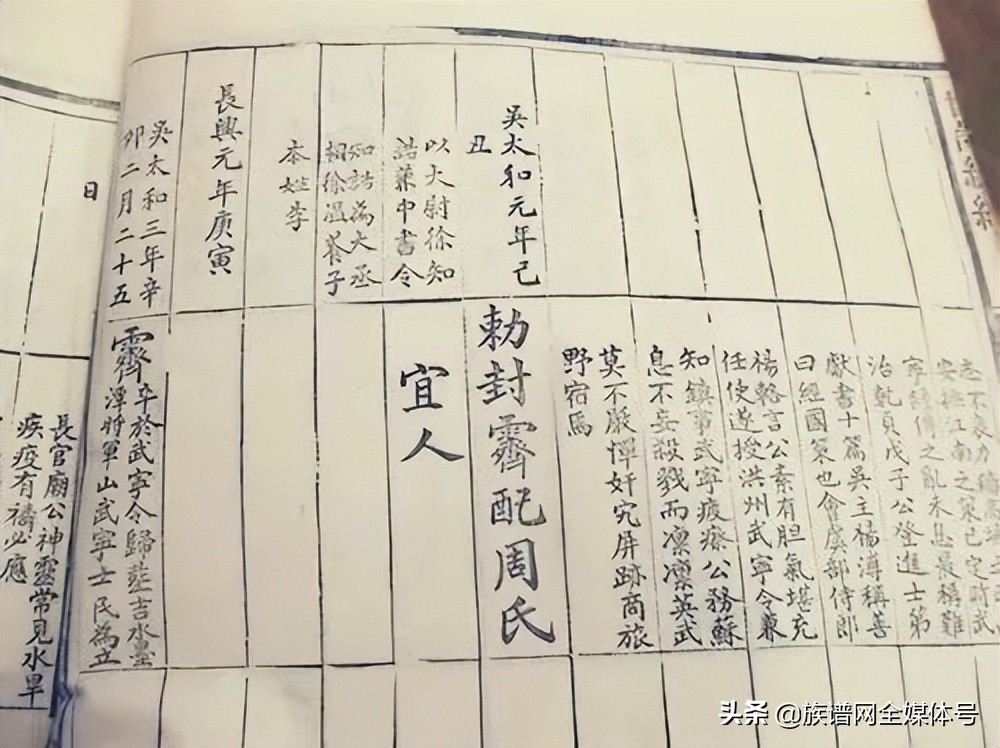 志不衰力
安撫江南之策已定時武
寧經傅之亂未息最稱難
治乾貞戊子公登進士第
獻書十篇吳主楊溥稱善
曰經國策也會虞部侍郎
楊輅言公素有胆氣堪充
任使遂授洪州武寧令兼
知鎮事武寧疲瘵公務蘇
息不妄殺戮而凛凛英武
莫不厭憚奸宄屏跡商旅
野宿焉
吳太和元年己
丑
以大尉徐知
誥兼中書令
知誥為大丞
相徐温養子
本姓李
勅封霽配周氏
宜人
長興元年庚寅
吳太和三年辛
卯二月二十五
日
霽
卒於武寧令歸塟吉水墨
潭將軍山武寧士民為立
長官廟公神靈常見水旱
疾疫有禱必應
头条 @族谱网全媒体号